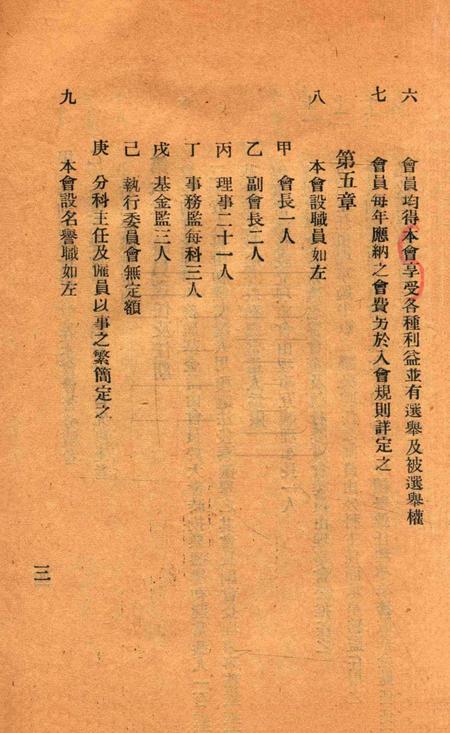 六 會員均得本會享受各種利益並有選舉及被選舉權
七 會員每年應納之會費另於入會規則詳定之
第五章
八 本會設職員如左
甲 會長一人
乙 副會長二人
丙 理事二十一人
丁 事務監每科三人
戊 基金監三人
己 執行委員會無定額
庚 分科主任及僱員以事之繁簡定之
九 本會設名譽職如左
三